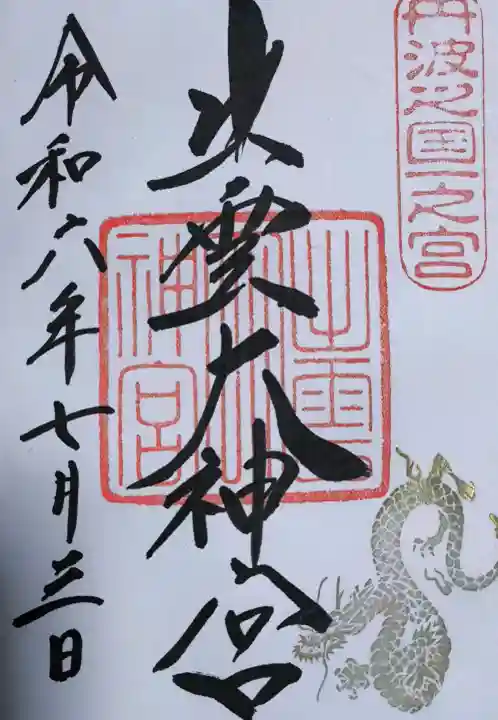 丹波之国一之宮
出雲大神宮
出雲大神宮
令和六年七月三日